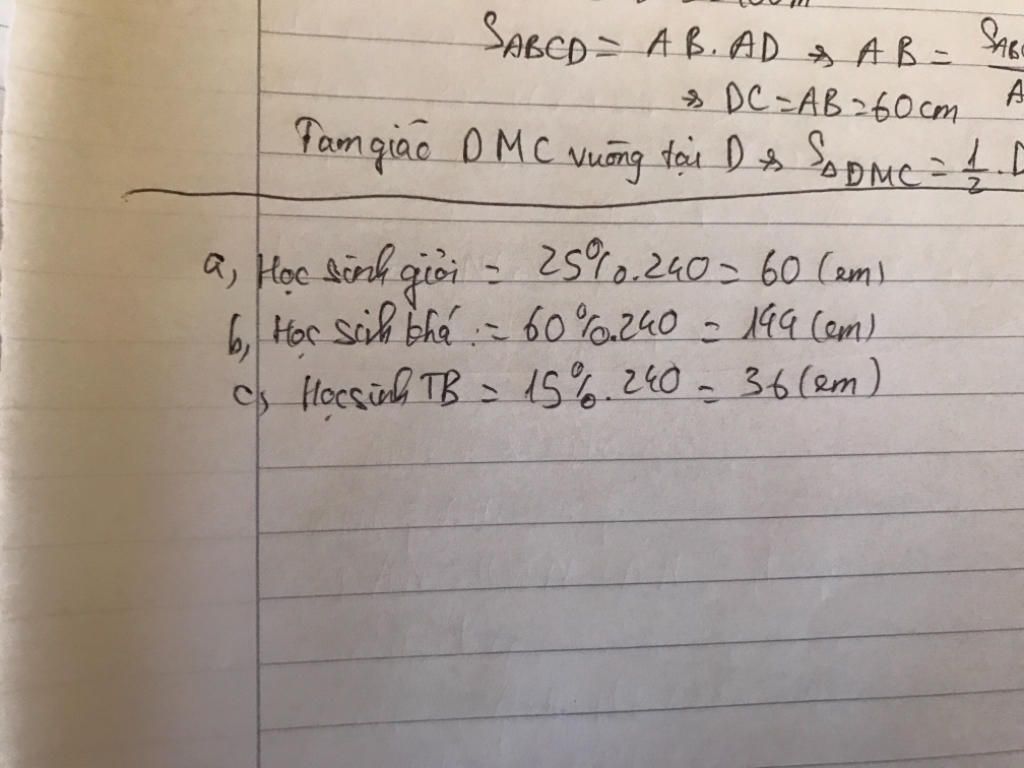 S_ABCD = AB.AD → AB = S_ABC
→ DC = AB = 60 cm A
Tam giác DMC vuông tại D → S_ΔDMC = 1/2 . D
a, Học sinh giỏi = 25%.240 = 60 (em)
b, Học sinh khá := 60%.240 = 144 (em)
c, Học sinh TB = 15%.240 = 36 (em)